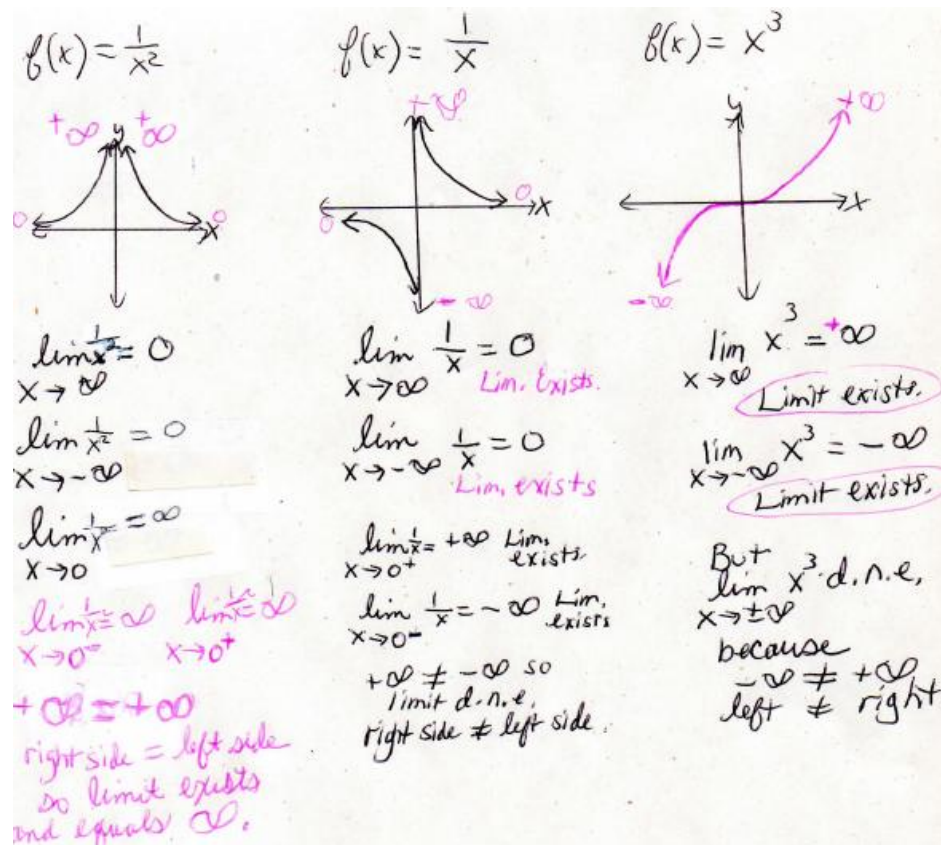 f(x) = 1/x²
+∞ +∞
y
0 0
x
lim 1/x² = 0
x→∞
lim 1/x² = 0
x→-∞
lim 1/x² = ∞
x→0
lim 1/x² = ∞ lim 1/x² = ∞
x→0⁻ x→0⁺
+∞ = +∞
right side = left side
so limit exists
and equals ∞.
f(x) = 1/x
+∞
0 0
x
-∞
lim 1/x = 0
x→∞ Lim. Exists.
lim 1/x = 0
x→-∞ Lim. exists
lim 1/x = +∞ Lim.
x→0⁺ exists.
lim 1/x = -∞ Lim.
x→0⁻ exists
+∞ ≠ -∞ so
limit d.n.e.
right side ≠ left side.
f(x) = x³
y
+∞
x
-∞
lim x³ = +∞
x→∞
Limit exists.
lim x³ = -∞
x→-∞
Limit exists.
But
lim x³ d.n.e.
x→±∞
because
-∞ ≠ +∞
left ≠ right